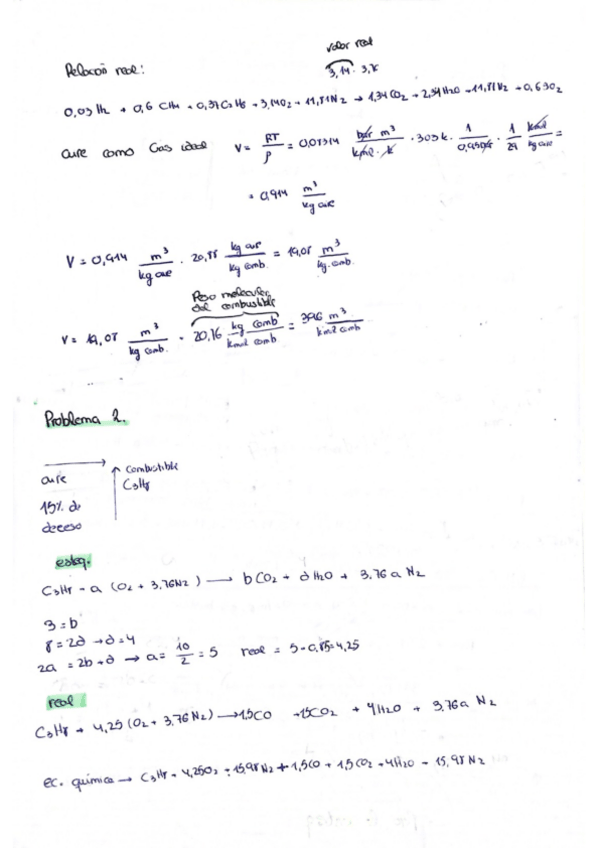 valor real
Relación real:
3,14 · 3,76
0,03 H2 + 0,6 CH4 + 0,37 C2H6 + 3,14 O2 + 11,81 N2 → 1,34 CO2 + 2,34 H2O + 11,81 N2 + 0,63 O2
aire como Gas ideal V = RT/P = 0,08314 bar m³/kmol · K · 303 K · 1/0,95 bar · 1/29 kmol/kg aire =
= 0,914 m³/kg aire
V = 0,914 m³/kg aire · 20,88 kg aire/kg comb. = 19,08 m³/kg. comb.
Peso molecular
del combustible
V = 19,08 m³/kg comb. · 20,76 kg comb/kmol comb = 396 m³/kmol comb
Problema 2.
aire
combustible
C3H8
15% de
defecto
esteq.
C3H8 + a (O2 + 3,76 N2) → b CO2 + d H2O + 3,76 a N2
3 = b
8 = 2d → d = 4
2a = 2b + d → a = 10/2 = 5 real = 5 · 0,85 = 4,25
real
C3H8 + 4,25 (O2 + 3,76 N2) → 1,5 CO + 1,5 CO2 + 4 H2O + 3,76 a N2
ec. química → C3H8 + 4,25 O2 + 15,98 N2 → 1,5 CO + 1,5 CO2 + 4 H2O + 15,98 N2